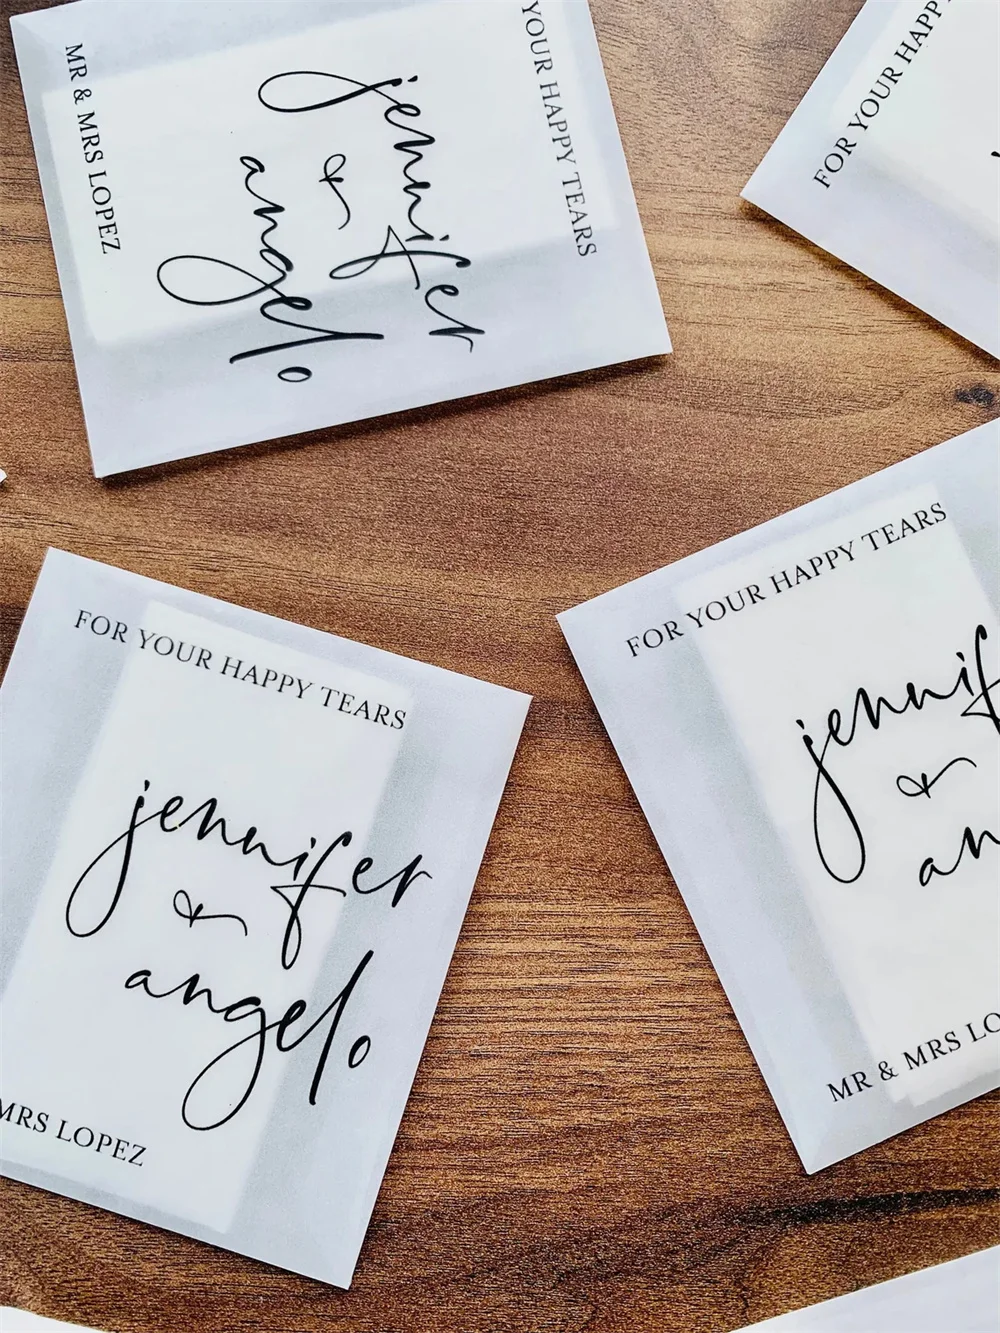 YOUR HAPPY TEARS
jennifer
&
angelo
MR & MRS LOPEZ
FOR YOUR HAPP
FOR YOUR HAPPY TEARS
jennifer
&
angelo
MRS LOPEZ
FOR YOUR HAPPY TEARS
jennif
&
an
MR & MRS LO